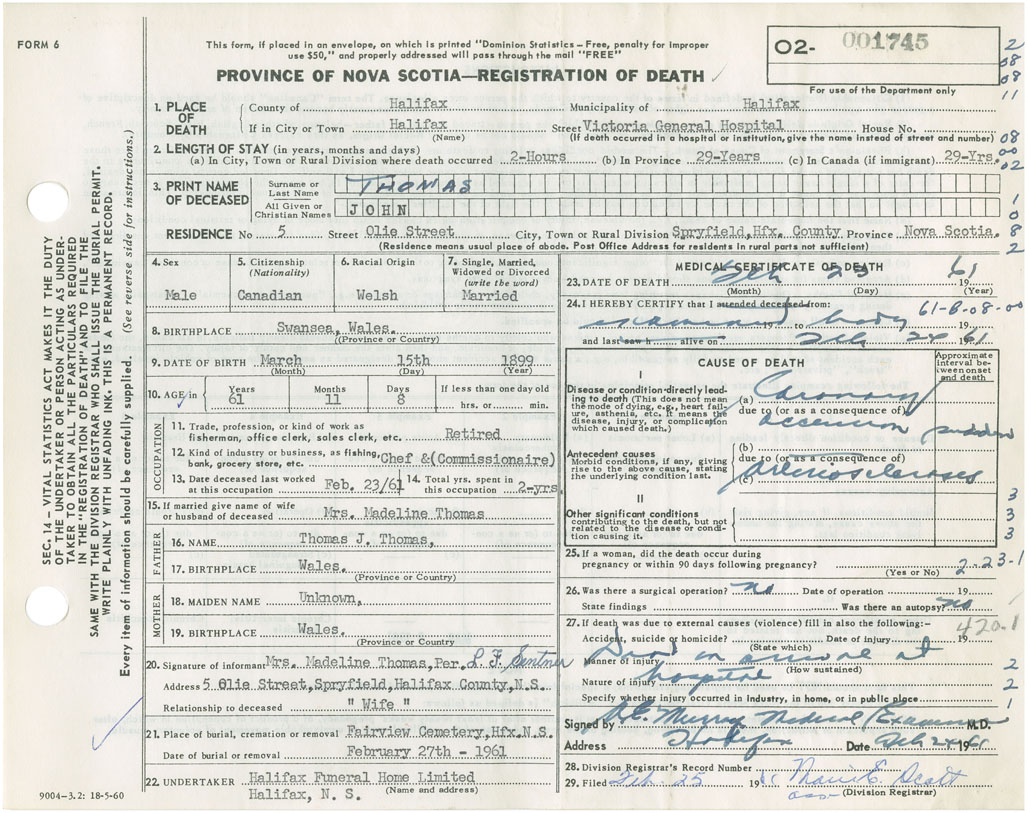 FORM 6
This form, if placed in an envelope, on which is printed "Dominion Statistics – Free, penalty for improper
use $50," and properly addressed will pass through the mail "FREE"
O2- 001745
For use of the Department only
PROVINCE OF NOVA SCOTIA—REGISTRATION OF DEATH
2
08
08
11
1. PLACE OF DEATH
County of Halifax Municipality of Halifax
If in City or Town Halifax Street Victoria General Hospital House No.
(Name) (If death occurred in a hospital or institution, give the name instead of street and number)
08
00
02
2. LENGTH OF STAY (in years, months and days)
(a) In City, Town or Rural Division where death occurred 2-Hours (b) In Province 29-Years (c) In Canada (if immigrant) 29-Yrs.
3. PRINT NAME OF DECEASED
Surname or Last Name THOMAS
All Given or Christian Names JOHN
1
0
8
2
RESIDENCE No 5 Street Olie Street City, Town or Rural Division Spryfield, Hfx. County. Province Nova Scotia.
(Residence means usual place of abode. Post Office Address for residents in rural parts not sufficient)
4. Sex
Male
5. Citizenship
(Nationality)
Canadian
6. Racial Origin
Welsh
7. Single, Married, Widowed or Divorced
(write the word)
Married
8. BIRTHPLACE Swansea, Wales.
(Province or Country)
9. DATE OF BIRTH March 15th 1899
(Month) (Day) (Year)
10. AGE in Years 61 Months 11 Days 8 If less than one day old
hrs. or min.
OCCUPATION
11. Trade, profession, or kind of work as
fisherman, office clerk, sales clerk, etc. Retired
12. Kind of industry or business, as fishing,
bank, grocery store, etc. Chef &(Commissionaire)
13. Date deceased last worked
at this occupation Feb. 23/61
14. Total yrs. spent in
this occupation 2-yrs.
15. If married give name of wife
or husband of deceased Mrs. Madeline Thomas
FATHER
16. NAME Thomas J. Thomas,
17. BIRTHPLACE Wales.
(Province or Country)
MOTHER
18. MAIDEN NAME Unknown,
19. BIRTHPLACE Wales.
(Province or Country)
20. Signature of informant Mrs. Madeline Thomas, Per.
Address 5 Olie Street,Spryfield,Halifax County,N.S.
Relationship to deceased " Wife "
21. Place of burial, cremation or removal Fairview Cemetery,Hfx.N.S.
Date of burial or removal February 27th - 1961
22. UNDERTAKER Halifax Funeral Home Limited
(Name and address)
Halifax, N. S.
MEDICAL CERTIFICATE OF DEATH
23. DATE OF DEATH Feb 23 1961
(Month) (Day) (Year)
24. I HEREBY CERTIFY that I attended deceased from: 61-B-08-00
examined 19 to body 19
and last saw h alive on Feb 24 1961
CAUSE OF DEATH
Approximate interval between onset and death
I
Disease or condition directly leading to death (This does not mean the mode of dying, e.g., heart failure, asthenia, etc. It means the disease, injury, or complication which caused death.)
(a) Coronary
due to (or as a consequence of)
sudden
Antecedent causes
Morbid conditions, if any, giving rise to the above cause, stating the underlying condition last.
(b)
due to (or as a consequence of)
(c) arteriosclerosis
II
Other significant conditions
contributing to the death, but not related to the disease or condition causing it.
3
3
3
25. If a woman, did the death occur during
pregnancy or within 90 days following pregnancy?
(Yes or No)
2-23-1
26. Was there a surgical operation? no Date of operation 19
State findings Was there an autopsy? no
27. If death was due to external causes (violence) fill in also the following:-
420-1
Accident, suicide or homicide? Date of injury 19
(State which)
Manner of injury Dead on arrival at
(How sustained)
Nature of injury hospital
Specify whether injury occurred in Industry, in home, or in public place
2
2
1
Signed by Murray Medical Examiner M.D.
Address Halifax Date Feb 24 1961
28. Division Registrar's Record Number
29. Filed Feb 25 1961 Marie E. Scott
(Division Registrar)
SEC. 14 – VITAL STATISTICS ACT MAKES IT THE DUTY
OF THE UNDERTAKER OR PERSON ACTING AS UNDER-
TAKER TO OBTAIN ALL THE PARTICULARS REQUIRED
IN THE "REGISTRATION OF DEATH" AND TO FILE THE
SAME WITH THE DIVISION REGISTRAR WHO SHALL ISSUE THE BURIAL PERMIT.
WRITE PLAINLY WITH UNFADING INK. THIS IS A PERMANENT RECORD.
Every item of information should be carefully supplied. (See reverse side for instructions.)
9004–3.2: 18-5-60